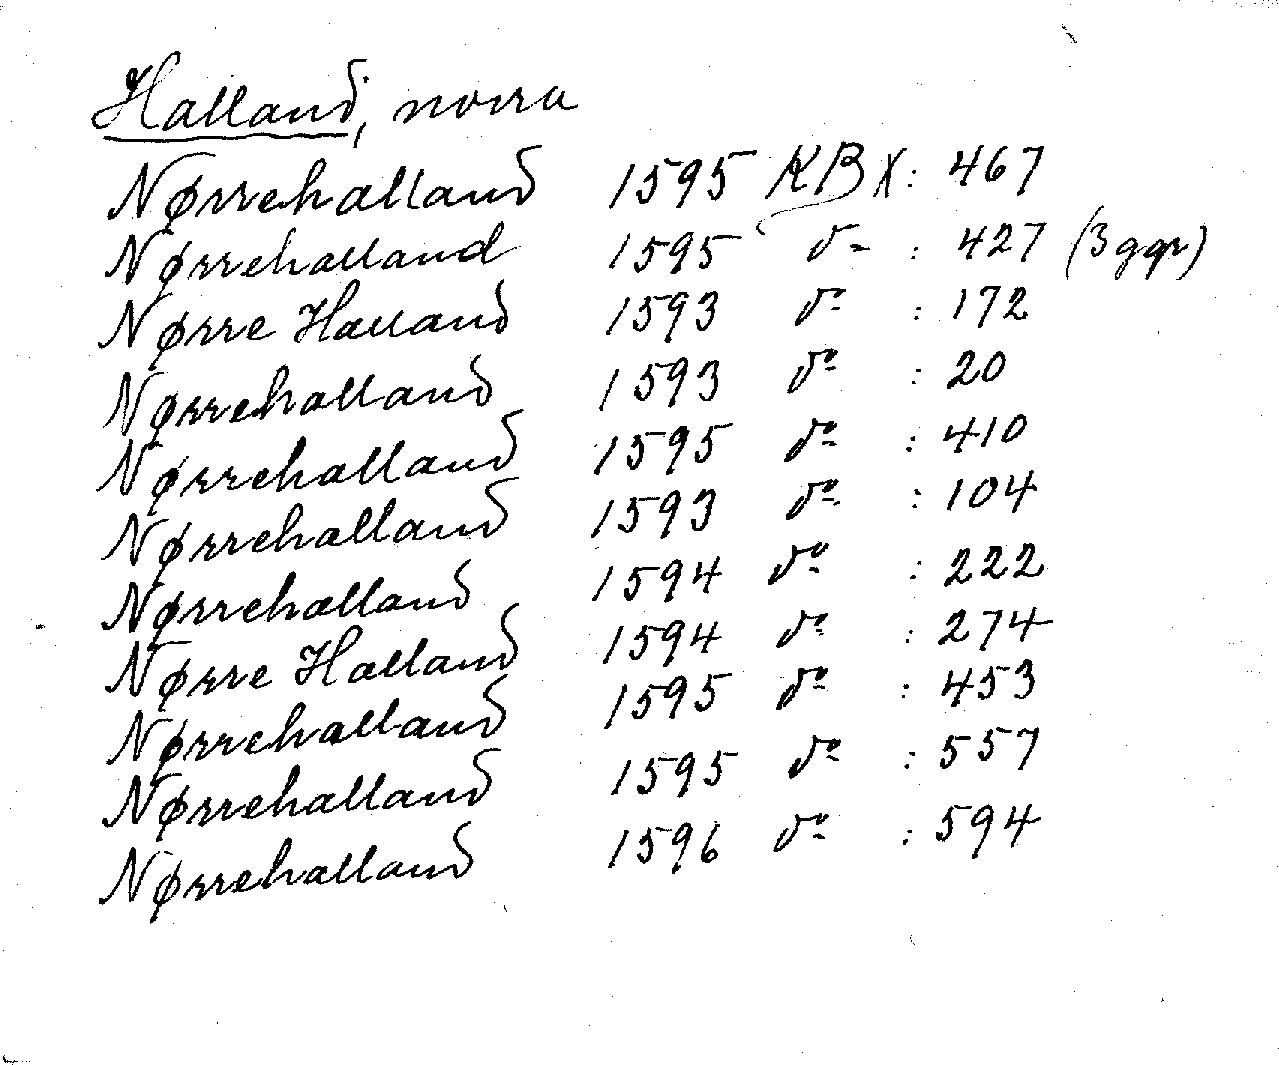 Halland, norra
Nørrehalland 1595 KB X: 467
Nørrehalland 1595 do : 427 (3 ggr)
Nørre Halland 1593 do : 172
Nørrehalland 1593 do : 20
Nørrehalland 1595 do : 410
Nørrehalland 1593 do : 104
Nørrehalland 1594 do : 222
Nørre Halland 1594 do : 274
Nørrehalland 1595 do : 453
Nørrehalland 1595 do : 557
Nørrehalland 1596 do : 594